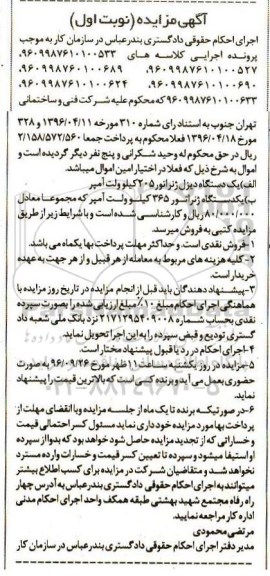 آگهی مزایده (نوبت اول)
اجرای احکام حقوقی دادگستری بندرعباس در سازمان کار به موجب
پرونده اجرایی کلاسه های ۹۶۰۹۹۸۷۶۱۰۱۰۰۵۳۳،
۹۶۰۹۹۸۷۶۱۰۱۰۰۵۲۷، ۹۶۰۹۹۸۷۶۱۰۱۰۰۶۸۹،
۹۶۰۹۹۸۷۶۱۰۱۰۰۶۹۰، ۹۶۰۹۹۸۷۶۱۰۱۰۰۵۶۰،
۹۶۰۹۹۸۷۶۱۰۱۰۰۶۳۳ که محکوم علیه شرکت فنی و ساختمانی
تهران جنوب به استناد رای شماره ۳۱۰ مورخه ۱۳۹۶/۰۴/۱۱ و ۳۲۸
مورخ ۱۳۹۶/۰۴/۱۸ فعلا محکوم به پرداخت جمعا ۲/۱۵۸/۵۷۲/۵۶۰
ریال در حق محکوم له وحید شکرانی و پنج نفر دیگر گردیده است و
اموال به شرح ذیل که فعلا در اختیار امین اموال میباشد.
الف) یک دستگاه دیزل ژنراتور ۲۰۵ کیلو ولت آمپر
ب) یکدستگاه ژنراتور ۳۶۵ کیلو ولت آمپر که مجموعا معادل
۸۰/۰۰۰/۰۰۰ ریال و کارشناسی شده است و با شرایط زیر از طریق
مزایده کتبی به فروش میرسد.
۱-فروش نقدی است. و حداکثر مهلت پرداخت بها یکماه می باشد.
۲-کلیه هزینه های مربوط به معامله از هر قبیل و از هر جهت به عهده
خریدار است.
۳-پیشنهاد دهندگان باید قبل از انجام مزایده در تاریخ روز مزایده با
هماهنگی اجرای احکام مبلغ ۱۰٪ مبلغ ارزیابی شده را بصورت سپرده
نقدی بحساب شماره ۲۱۷۱۲۹۵۴۰۹۰۰۸ نزد بانک ملی شعبه داد
گستری تودیع و قبض سپرده را به این اجرا تحویل نماید.
۴-اجرای احکام در رد یا قبول پیشنهاد مختار است.
۵-مزایده در روز یکشنبه ساعت ۱۱ ظهر مورخ ۹۶/۰۹/۲۶ به صورت
حضوری بعمل می آید و برنده کسی است که بالاترین قیمت را پیشنهاد
نماید.
۶-در صورتیکه برنده تا یک ماه از جلسه مزایده و با انقضاء مهلت از
پرداخت بها مورد مزایده خودداری نماید مسئول کسر احتمالی قیمت
و خساراتی که از تجدید مزایده حاصل شود خواهد بود که بدوا از سپرده
او استیفا میشود و سپرده تا تعیین کسر قیمت و خسارات وارده مسترد
نخواهد شد و متقاضیان شرکت در مزایده برای کسب اطلاع بیشتر
میتوانند به اجرای احکام حقوقی دادگستری بندرعباس به آدرس چهار
راه رفاه مجتمع شهید بهشتی طبقه همکف واحد اجرای احکام مدنی
اداره کار مراجعه نمایید.
مرتضی محمودی
مدیر دفتر اجرای احکام حقوقی دادگستری بندرعباس در سازمان کار